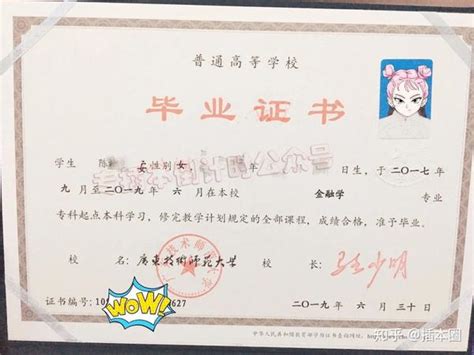 普通高等学校
毕业证书
学生 陈 性别 女 年 日生，于二〇一七年
九月至二〇一九年 六月在本校 金融学 专业
专科起点本科学习，修完教学计划规定的全部课程，成绩合格，准予毕业。
校 名： 广东技术师范大学 校 长：
证书编号：10 WOW! 627 二〇一九年 六月 三十日
中华人民共和国教育部学历证书查询网址：
知乎 @插本圈